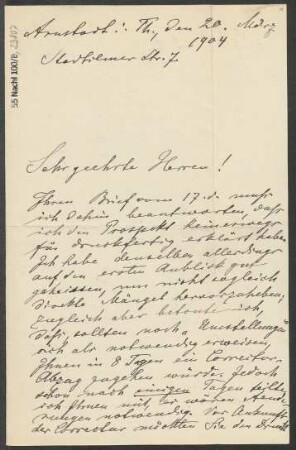 Arnstadt i. Th., den 20. März
1904
Stadtilmer Str. 7.
55 Nachl 100/B,
Sehr geehrte Herren!
Ihren Brief vom 17. d. muß
ich dahin beantworten, daß
ich den Prospekt keineswegs
für druckfertig erklärt habe.
Ich habe denselben allerdings
auf den ersten Anblick gut
geheissen, um nicht sogleich
direkte Mängel hervorzuheben;
zugleich aber betonte ich,
daß, sollten noch Umstellungen
sich als notwendig erweisen,
Ihnen in 8 Tagen ein Correctur-
Abzug zugehen würde. Jedoch
schon nach einigen Tagen teilte
ich Ihnen mit, es wären Aende-
rungen notwendig. Vor Ankunft
der Correctur möchten Sie den Druck